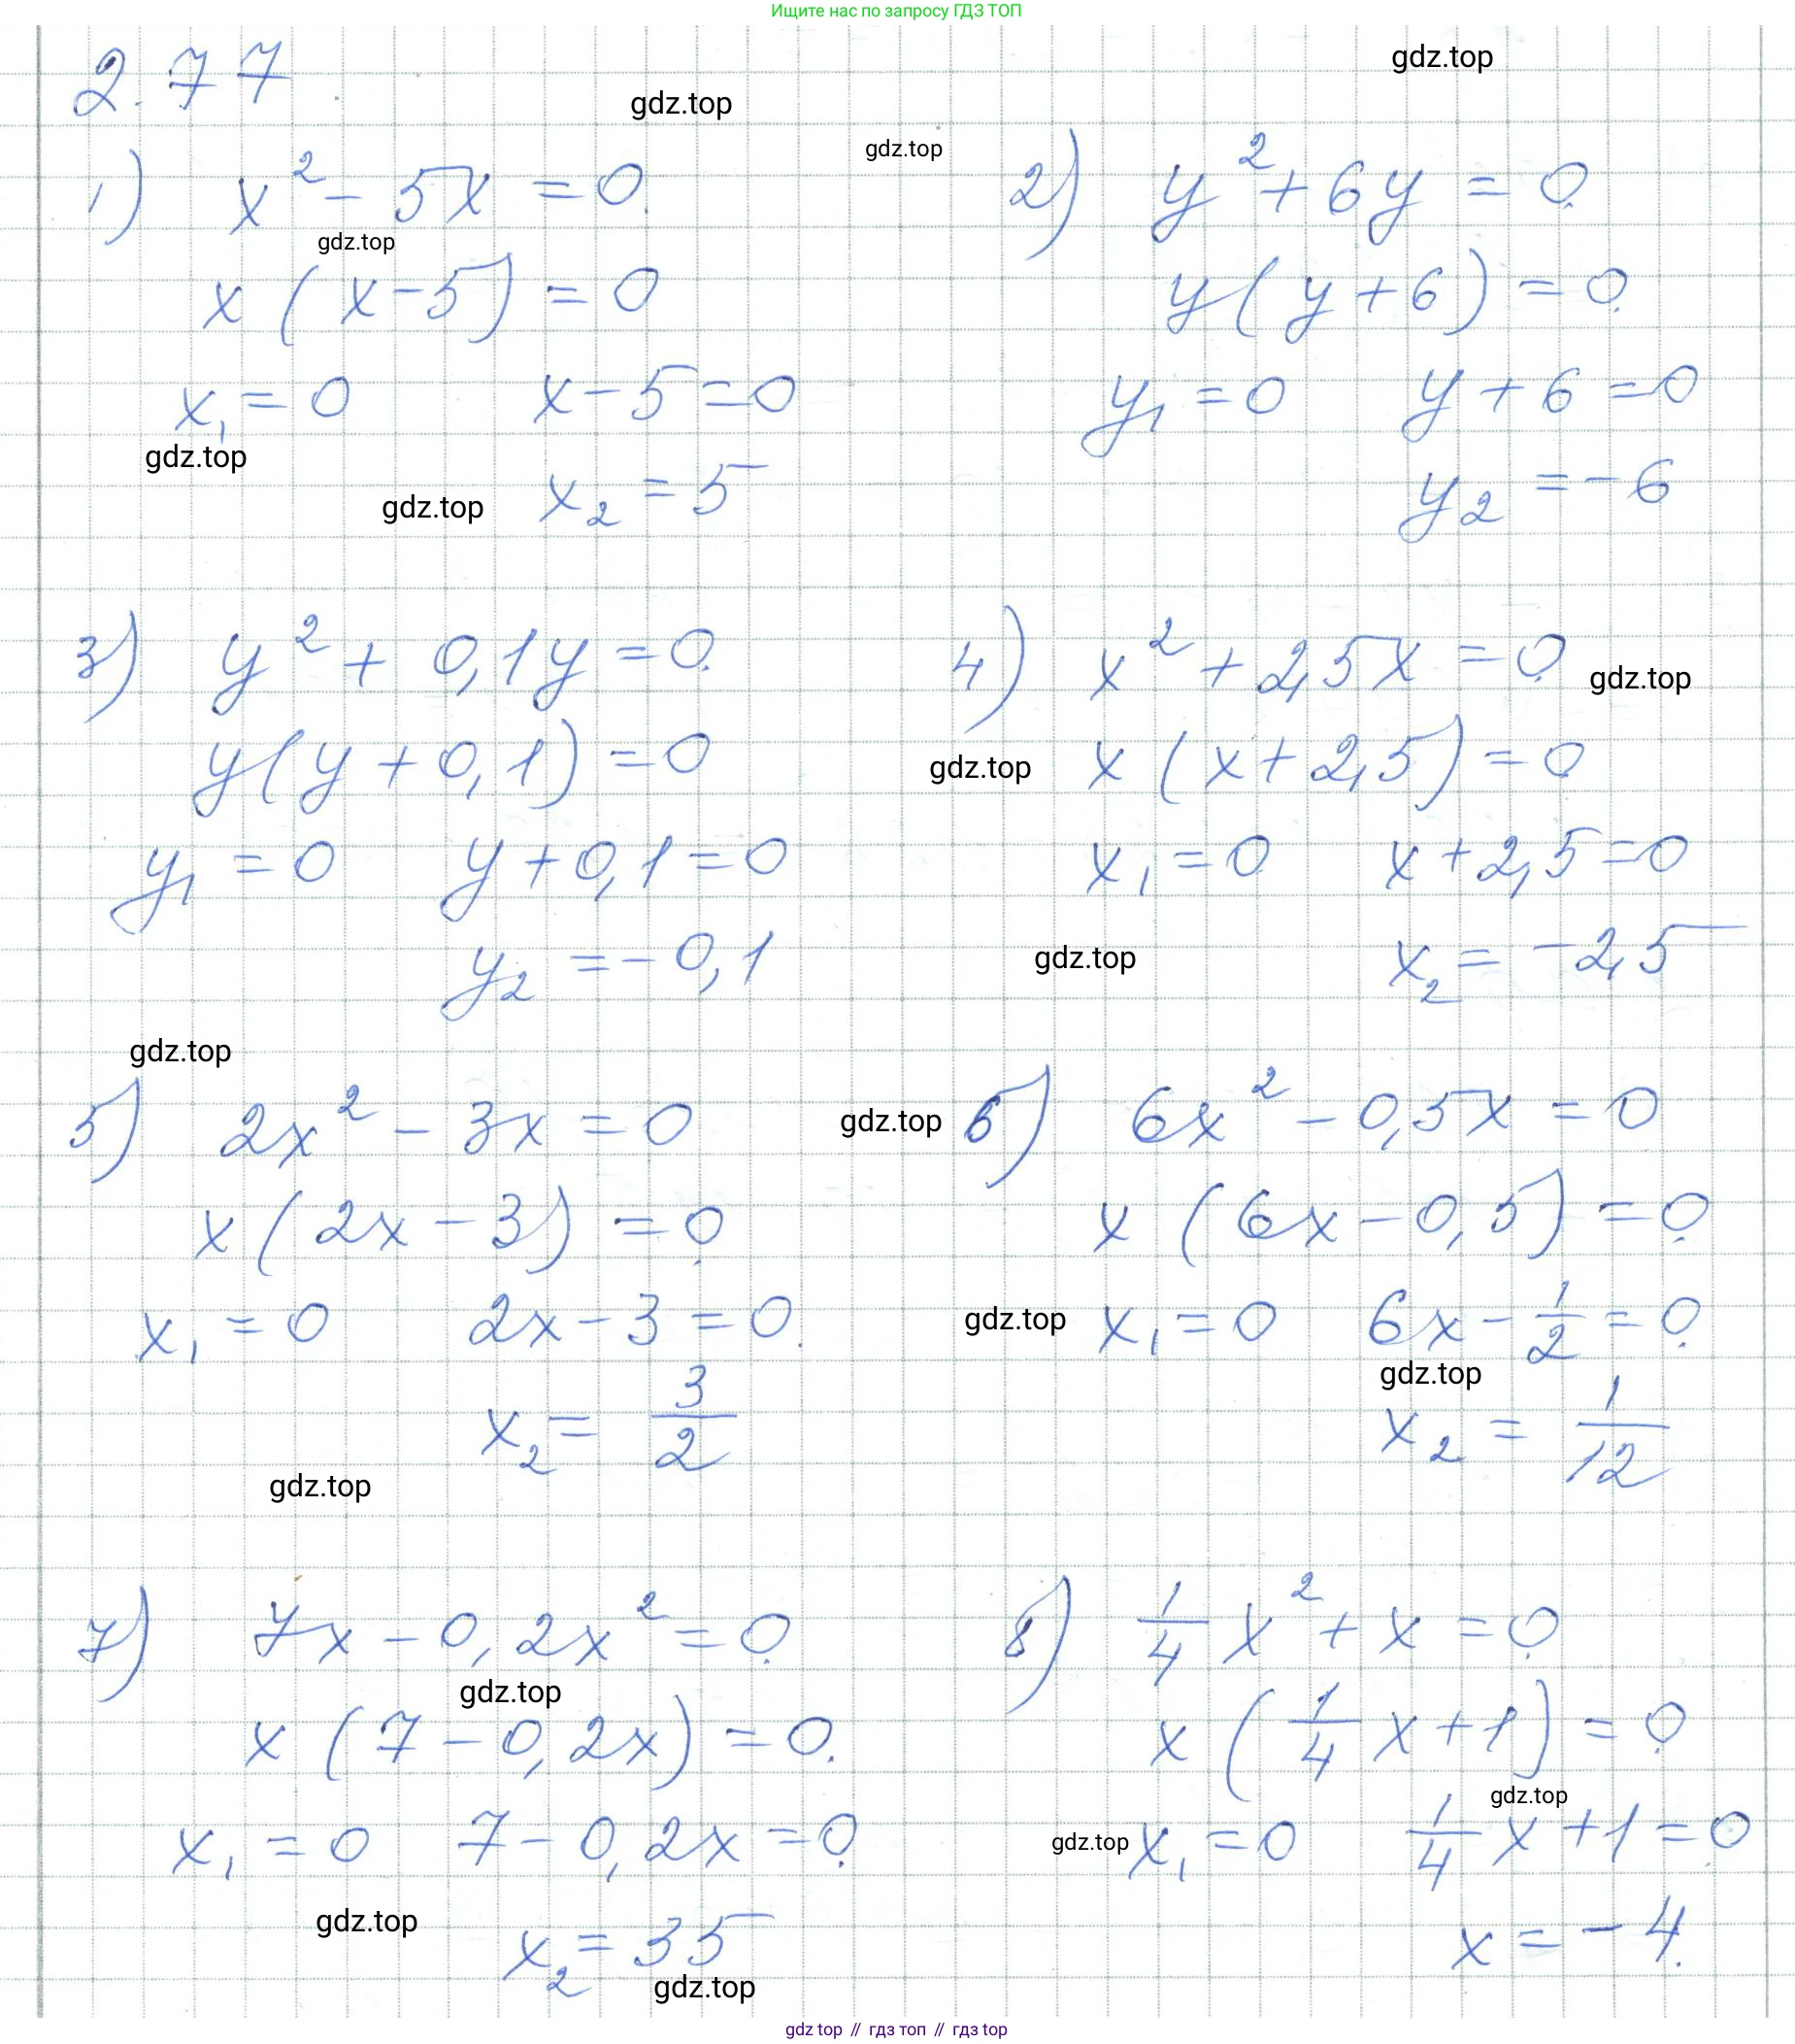 Ищите нас по запросу ГДЗ ТОП
2.77.
gdz.top
gdz.top
gdz.top
1) x² - 5x = 0.
gdz.top
x(x-5) = 0
x₁ = 0 x-5=0
gdz.top
gdz.top
x₂ = 5
2) y² + 6y = 0.
y(y+6) = 0.
y₁ = 0 y+6=0
y₂ = -6
3) y² + 0,1y = 0.
y(y+0,1) = 0
y₁ = 0 y+0,1=0
y₂ = -0,1
4) x² + 2,5x = 0.
gdz.top
gdz.top
x(x+2,5) = 0
x₁ = 0 x+2,5=0
gdz.top
x₂ = -2,5
gdz.top
5) 2x² - 3x = 0
x(2x-3) = 0.
x₁ = 0 2x-3=0.
x₂ = 3/2
gdz.top
gdz.top
6) 6x² - 0,5x = 0
x(6x-0,5) = 0.
gdz.top
x₁ = 0 6x - 1/2 = 0.
gdz.top
x₂ = 1/12
7) 7x - 0,2x² = 0.
gdz.top
x(7-0,2x) = 0.
x₁ = 0 7-0,2x=0.
gdz.top
x₂ = 35
gdz.top
8) 1/4 x² + x = 0.
x(1/4 x+1) = 0.
gdz.top
gdz.top
x₁ = 0 1/4 x+1=0.
x = -4.
gdz top // гдз топ // гдз top